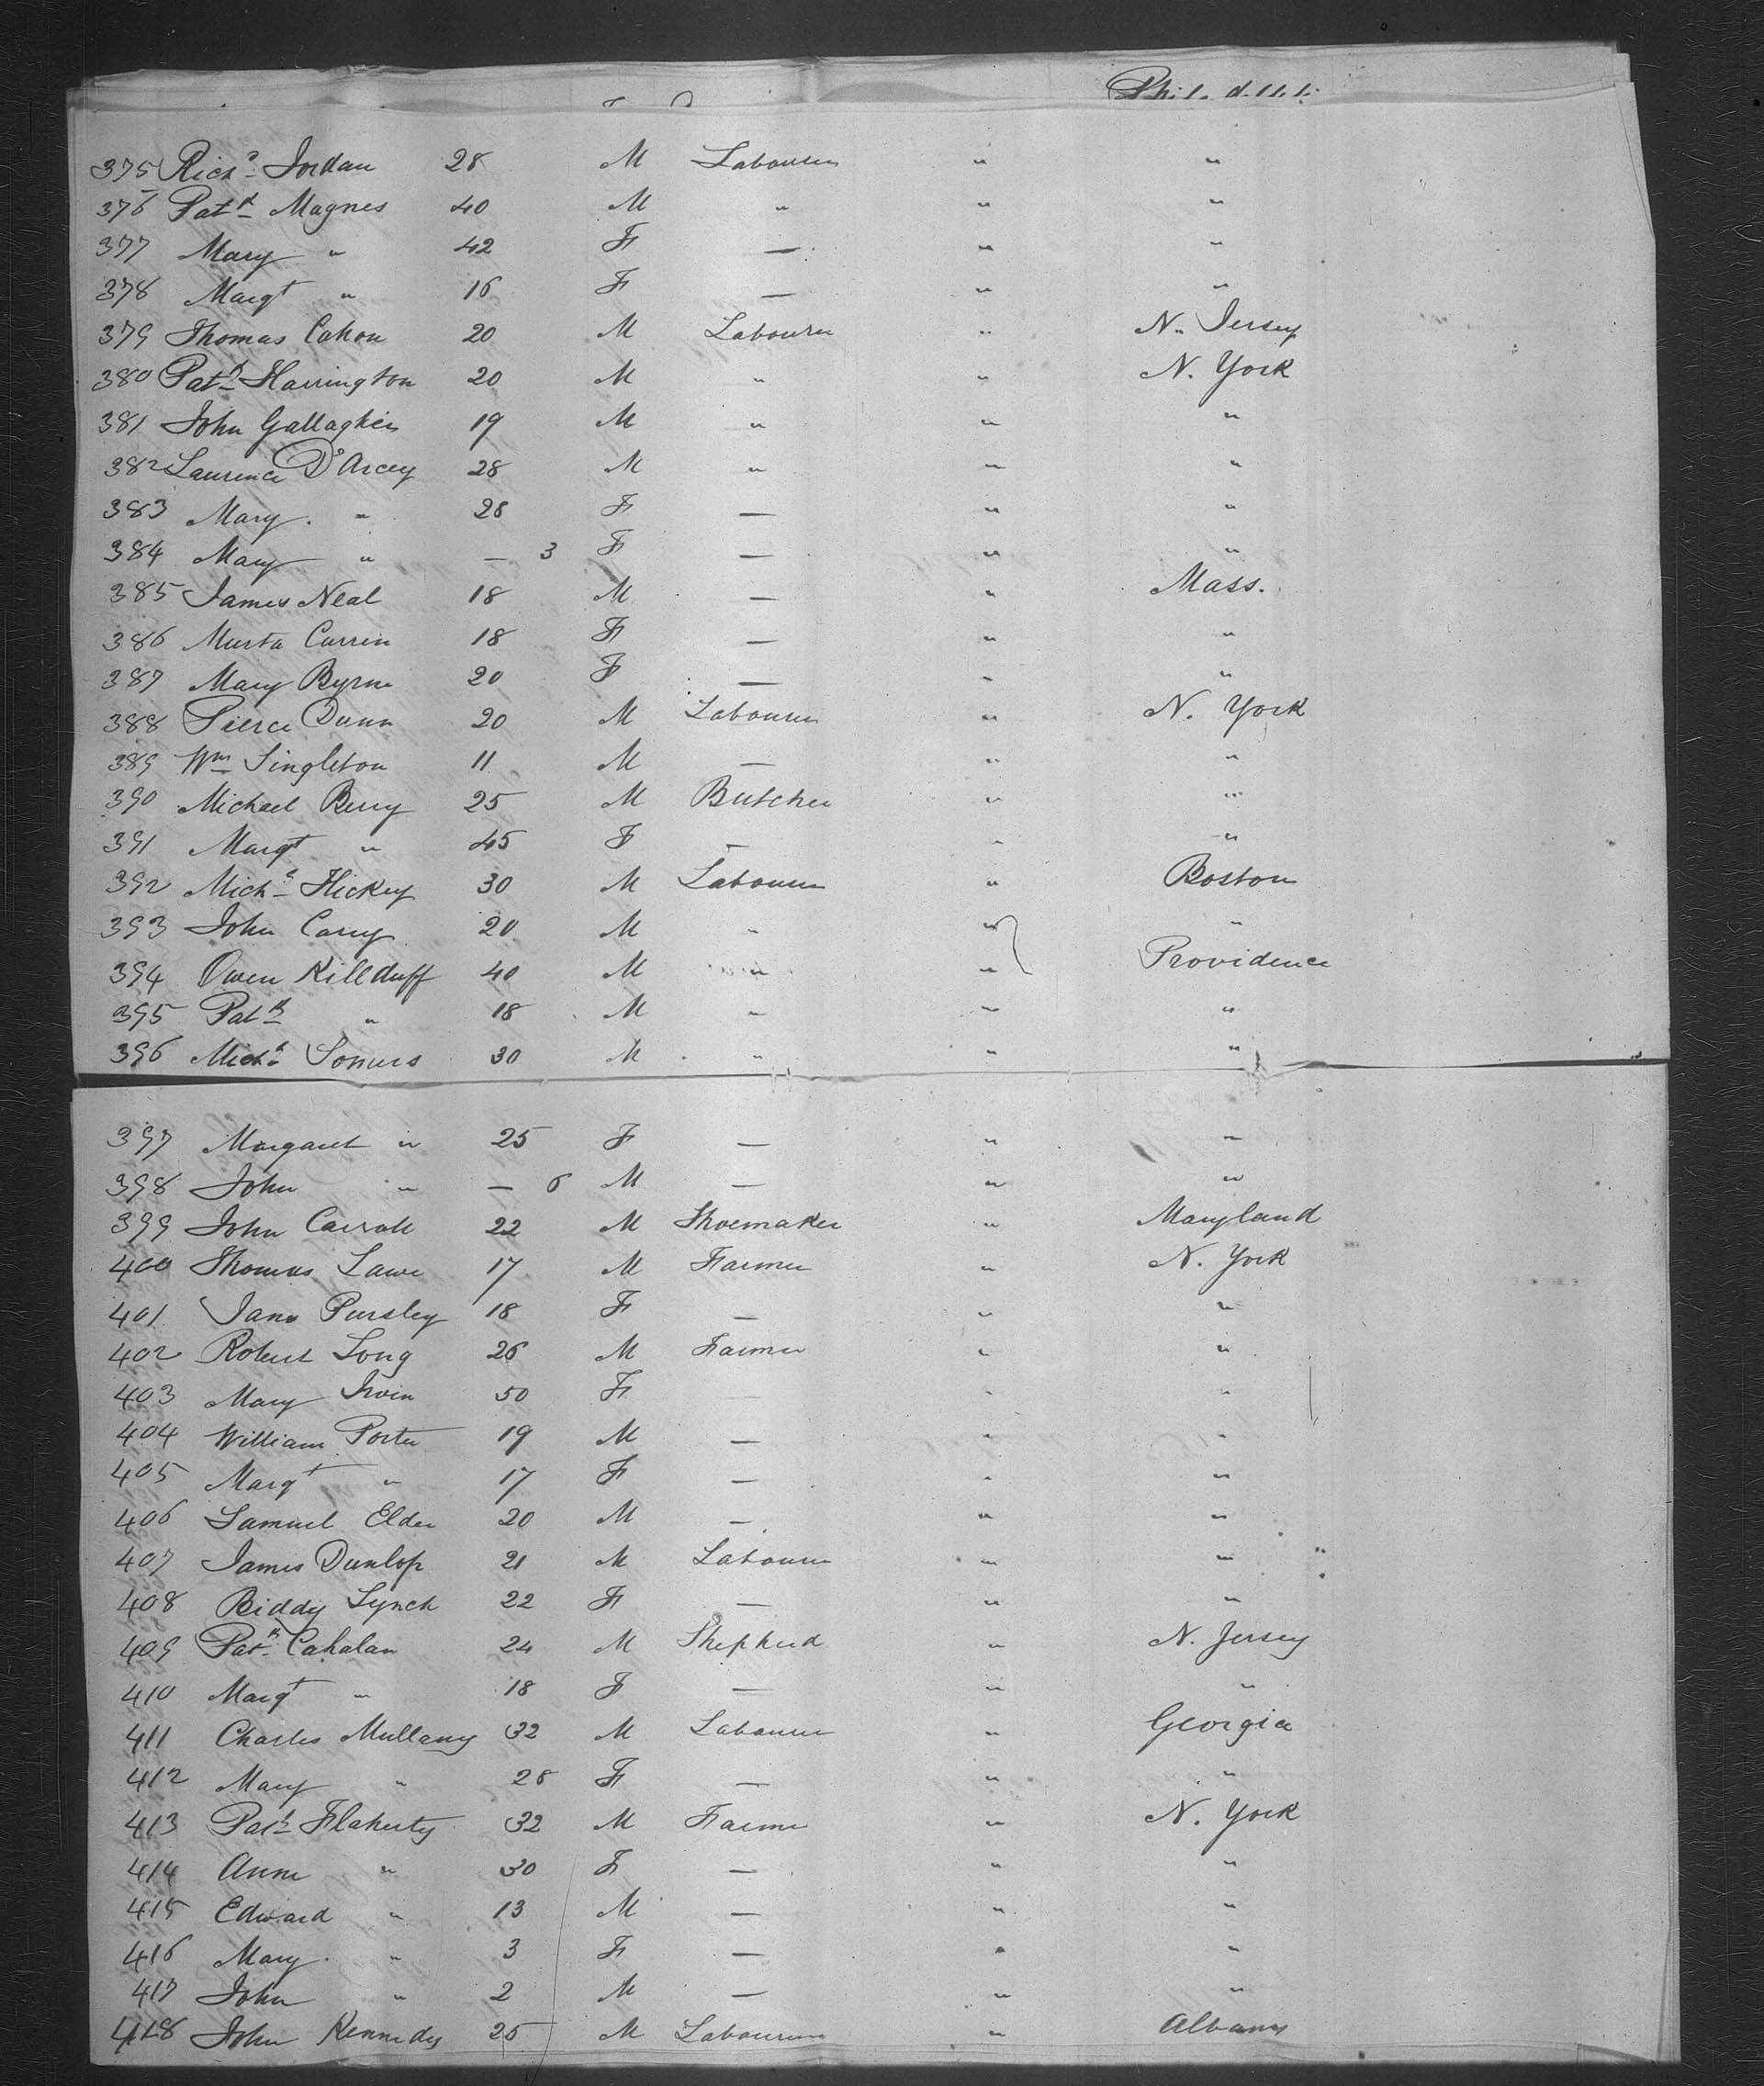 375 Richd Jordan 28 M Labourer " "
376 Patk Magnes 40 M " " "
377 Mary " 42 F — " "
378 Margt " 16 F — " "
379 Thomas Cahon 20 M Labourer " N. Jersey
380 Patk Harrington 20 M " " N. York
381 John Gallagher 19 M " " "
382 Laurence D'Arcey 28 M " " "
383 Mary " 28 F — " "
384 Mary " — 3 F — " "
385 James Neal 18 M — " Mass.
386 Murta Currin 18 F — " "
387 Mary Byrne 20 F — " "
388 Pierce Dunn 20 M Labourer " N. York
389 Wm Singleton 11 M — " "
390 Michael Berry 25 M Butcher " "
391 Margt " 45 F — " "
392 Michl Hickey 30 M Labourer " Boston
393 John Carey 20 M " " "
394 Owen Killduff 40 M " " Providence
395 Patk " 18 M " " "
396 Michl Somers 30 M " " "
397 Margaret " 25 F — " "
398 John " — 6 M — " "
399 John Carroll 22 M Shoemaker " Maryland
400 Thomas Lawe 17 M Farmer " N. York
401 Jane Pursley 18 F — " "
402 Robert Long 26 M Farmer " "
403 Mary Irvin 50 F — " "
404 William Porter 19 M — " "
405 Margt " 17 F — " "
406 Samuel Elder 20 M — " "
407 James Dunlop 21 M Labourer " "
408 Biddy Lynch 22 F — " "
409 Patk Cahalan 24 M Shepherd " N. Jersey
410 Margt " 18 F — " "
411 Charles Mullany 32 M Labourer " Georgia
412 Mary " 28 F — " "
413 Patk Flaherty 32 M Farmer " N. York
414 Anne " 30 F — " "
415 Edward " 13 M — " "
416 Mary " 3 F — " "
417 John " 2 M — " "
418 John Kennedy 25 M Labourer " Albany